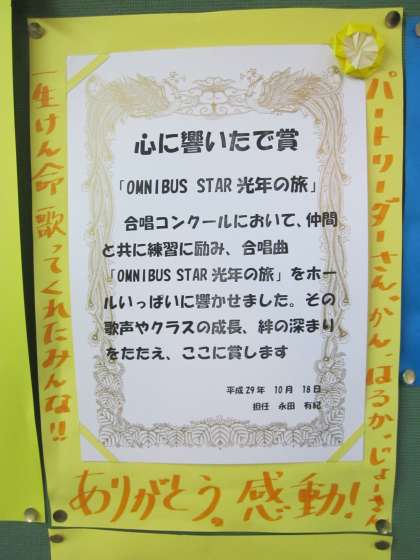 心に響いたで賞
「OMNIBUS STAR 光年の旅」
合唱コンクールにおいて、仲間
と共に練習に励み、合唱曲
「OMNIBUS STAR 光年の旅」をホー
ルいっぱいに響かせました。その
歌声やクラスの成長、絆の深まり
をたたえ、ここに賞します
平成29年 10月 18日
担任 永田 有紀
パートリーダーさん、かん、はるか、じょーさん
一生けん命歌ってくれたみんな!!
ありがとう。感動!